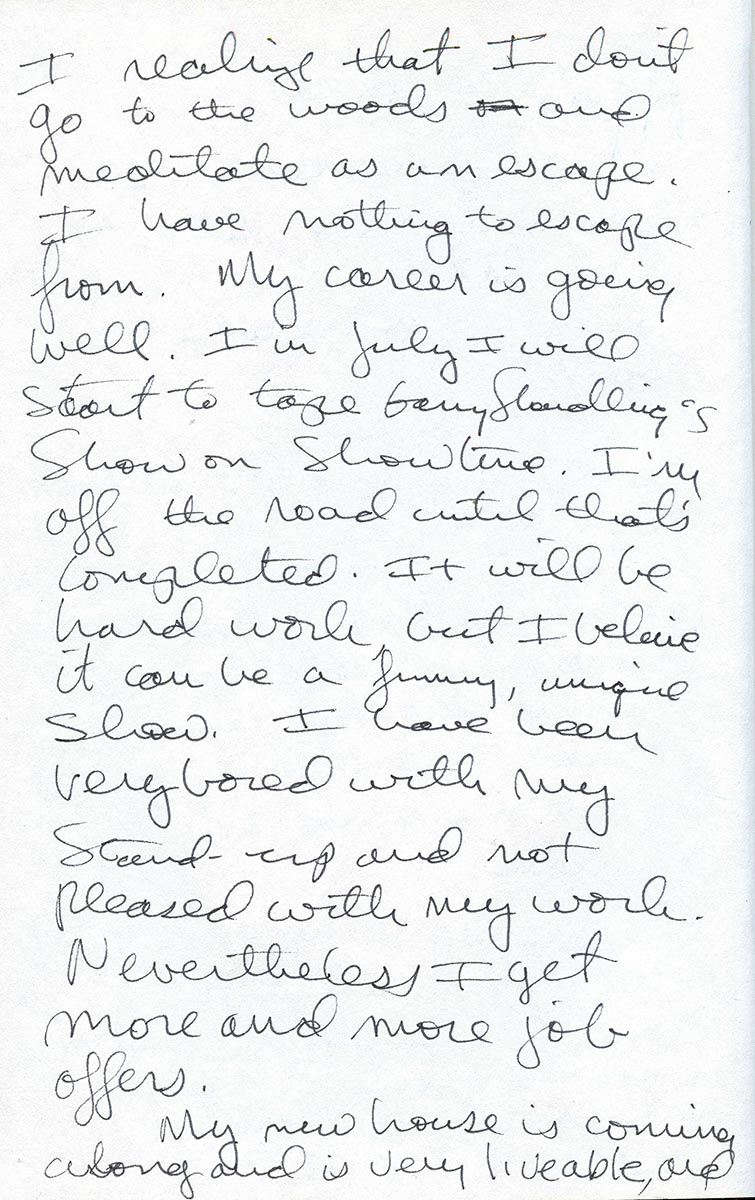 I realize that I don't
go to the woods and
meditate as an escape.
I have nothing to escape
from. My career is going
well. I in July I will
start to tape Garry Shandling's
Show on Showtime. I'm
off the road until that's
completed. It will be
hard work, but I believe
it can be a funny, unique
show. I have been
very bored with my
Stand-up and not
pleased with my work.
Nevertheless I get
more and more job
offers.
My new house is coming
along and is very liveable, and